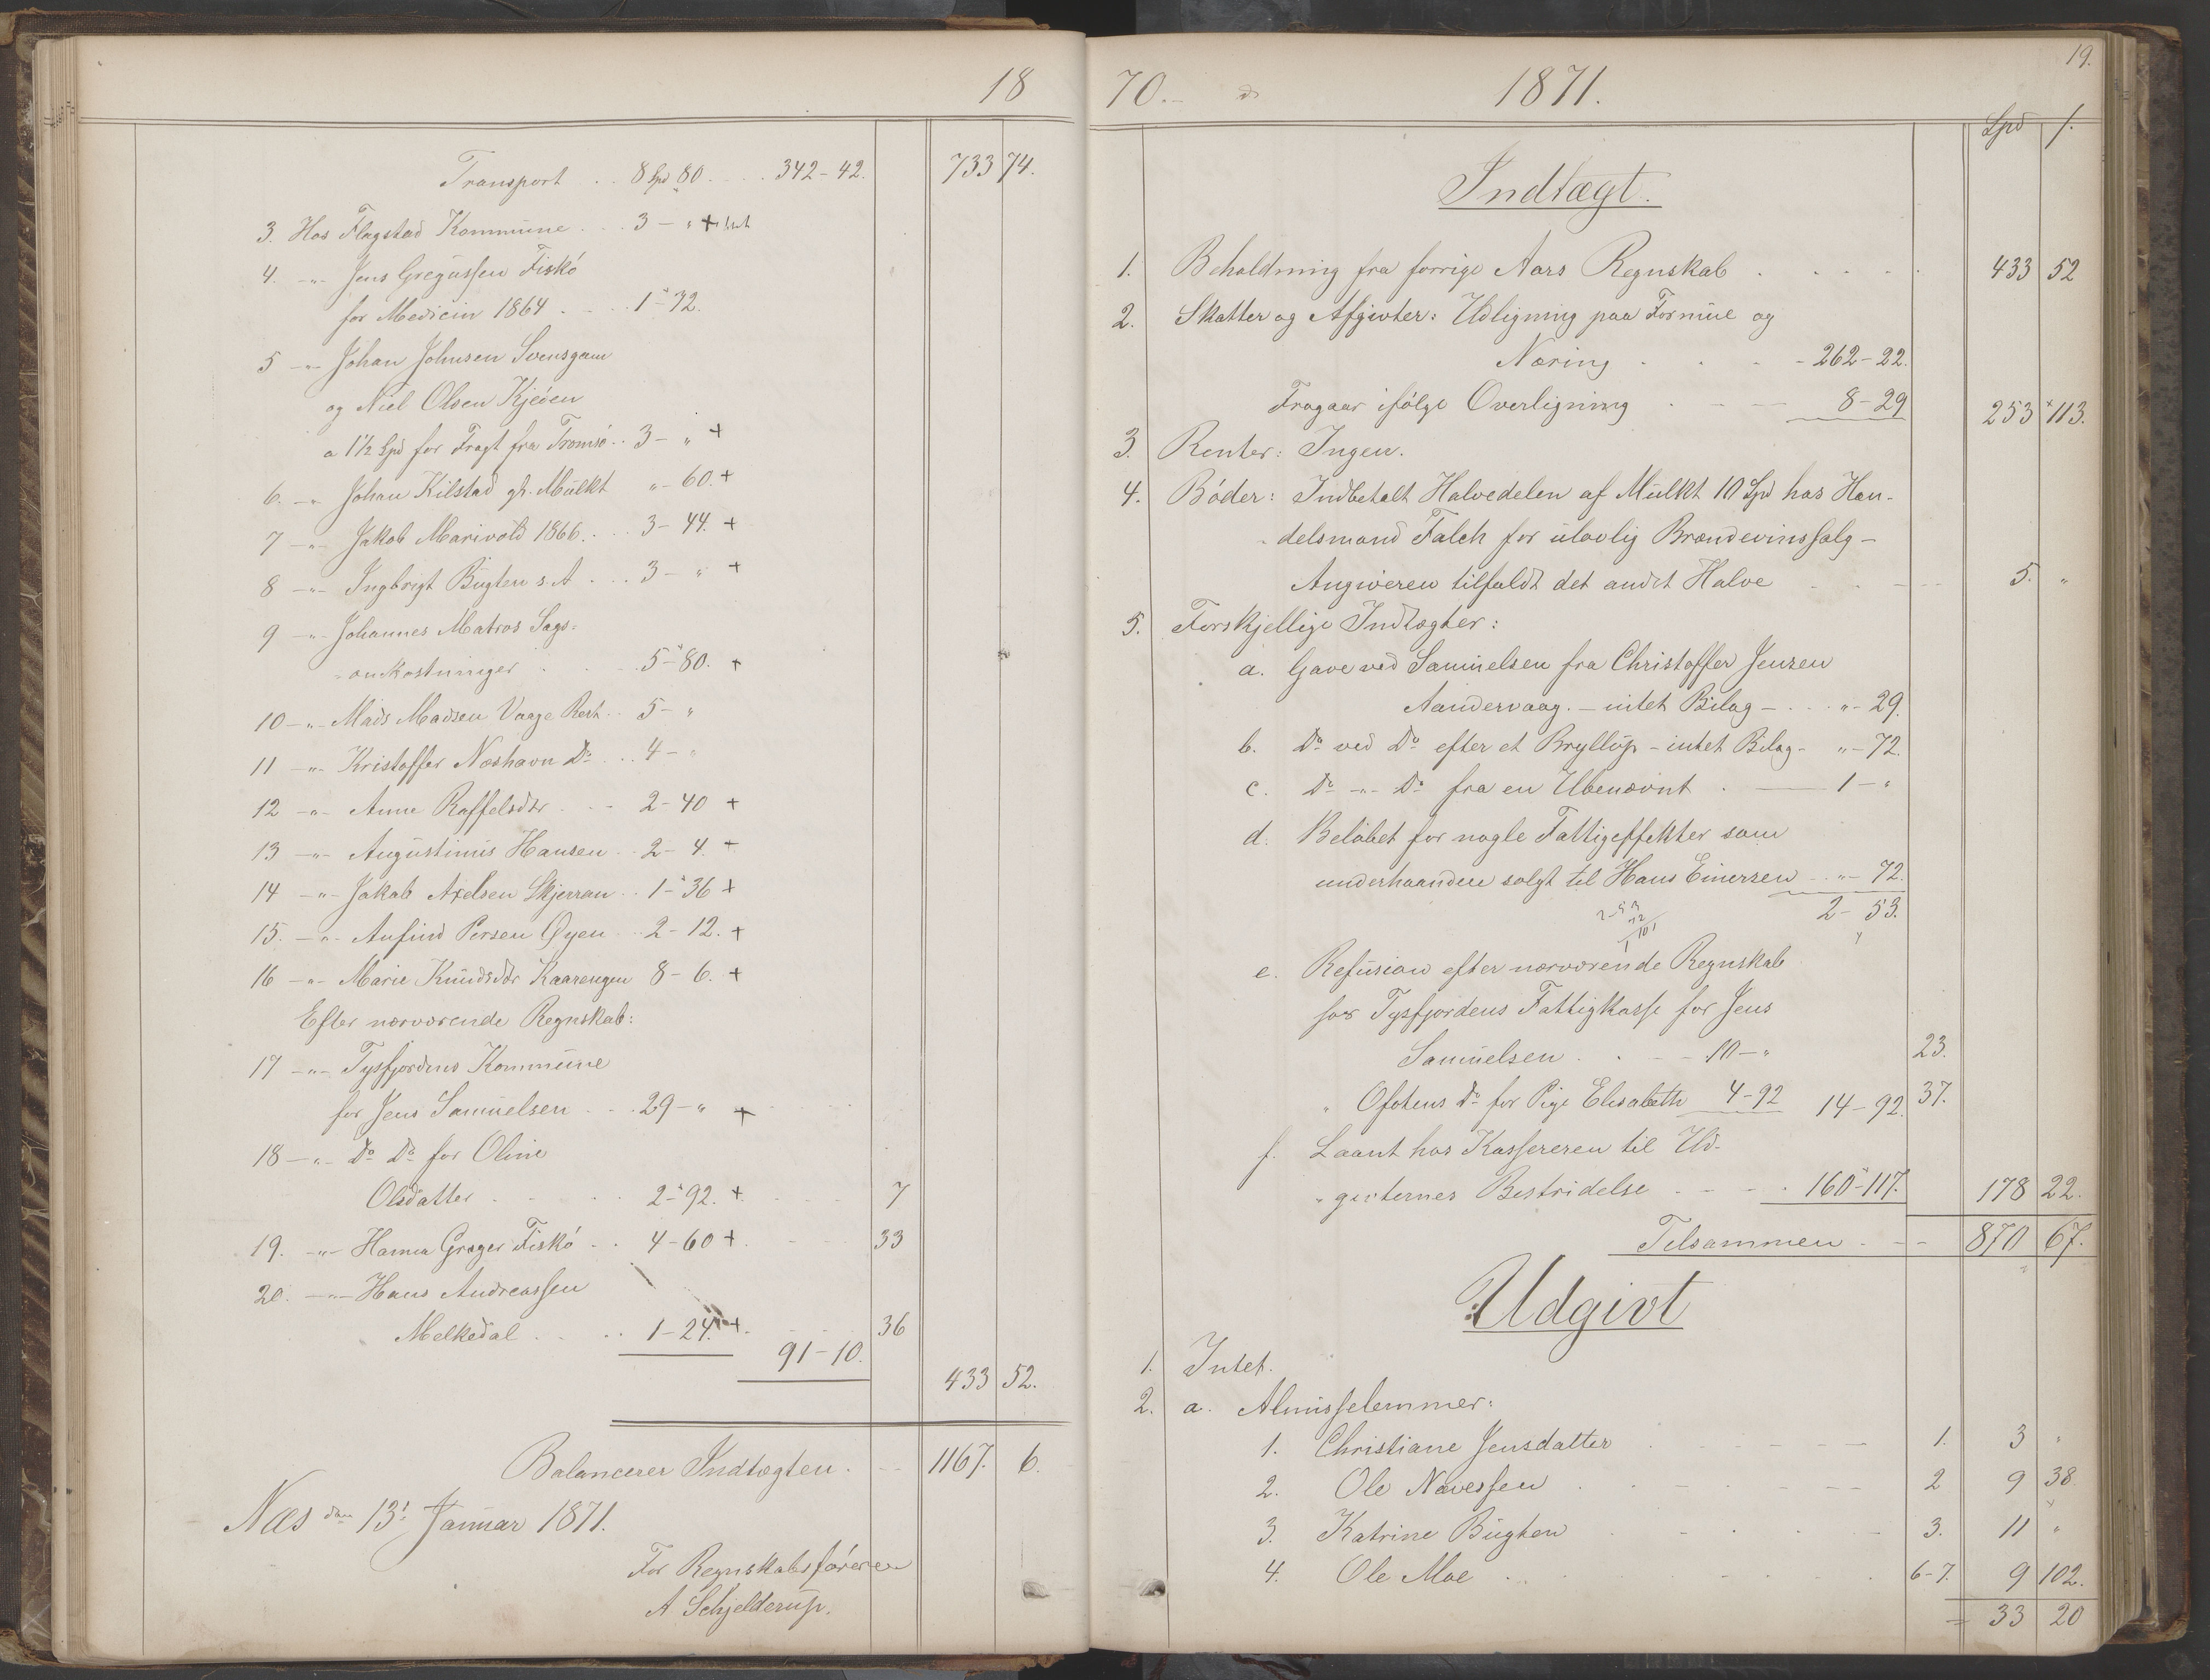 18
Transport . . 8 Spd 80 . . . . 342 - 42. 733 74.
3. Hos Flagstad Kommune . . . 3 - " +
4. -"- Jens Gregussen Fiskö
for Medicin 1864 . . . . 1 - 72.
5 -"- Johan Johnsen Svensgam
og Niel Olsen Kjeøen
a 1 1/2 Spd for Fragt fra Tromsö . . 3 - " +
6. -"- Johan Kilstad gl. Mulkt " - 60. +
7 -"- Jakob Marivold 1866 . . . . 3 - 44. +
8 -"- Ingbrigt Bugten s. A . . . 3 - " +
9 -"- Johannes Matros Sags-
omkostninger . . . . 5 - 80. +
10 -"- Mads Madsen Vaage Rest . . 5 - "
11 -"- Kristoffer Næshavn Do . . . 4 - "
12 -"- Anne Raffelsdtr . . . 2 - 40 +
13 -"- Augustinus Hansen . . 2 - 4. +
14 -"- Jakob Axelsen Skjerran . . 1 - 36 +
15. -"- Anfind Persen Øyen . . 2 - 12. +
16 -"- Marie Knudsdtr Kaarengen 8 - 6. +
Efter nærværende Regnskab:
17 -"- Tysfjordens Kommune
for Jens Samuelsen . . . 29 - " +
18 -"- Do Do for Oline
Olsdatter . . . . 2 - 92. + 7
19. -"- Hanna Greger Fiskö . . 4 - 60 + 33
20. -"- Hans Andreassen
Melkedal . . . . 1 - 24. + 36
91 - 10.
433 52.
Balancerer Indtægten . 1167. 6.
Næs den 13de Januar 1871.
For Regnskabsföreren
A Schjelderup.
19.
70. 1871.
Spd /.
Indtægt.
1. Beholdning fra forrige Aars Regnskab . . . . . 433 52
2. Skatter og Afgivter: Udligning paa Formue og
Næring . . . - 262 - 22.
Fragaar ifølge Overligning . . . 8 - 29 253 113.
3. Renter: Ingen.
4. Böder: Indbetalt Halvedelen af Mulkt 10 Spd hos Han-
delsmand Falch for ulovlig Brændevinssalg -
Angiveren tilfaldt det andet Halve . . . 5. "
5. Forskjellige Indtægter:
a. Gave ved Samuelsen fra Christoffer Jensen
Aandervaag. - intet Bilag - . . . " - 29.
b. Do ved Do efter et Bryllup - intet Bilag - " - 72.
c. Do -"- Do fra en Ubenævnt . 1 - "
d. Belöbet for nogle Fattigeffekter som
underhaanden solgt til Hans Einersen . . " - 72.
2 - 53.
e. Refusion efter nærværende Regnskab
for Tysfjordens Fattigkasse for Jens
Samuelsen . . - - 10 - " 23.
" Ofotens Do for Pige Elisabeth 4 - 92 14 - 92. 37.
f. Laant hos Kassereren til Ud-
givternes Bestridelse . . . . 160 - 117. 178 22.
Tilsammen . - - 870 67.
Udgivt
1. Intet.
2. a. Almisselemmer:
1. Christiane Jensdatter 1. 3 "
2. Ole Navessen 2 9 38.
3. Katrine Bugten 3. 11 "
4. Ole Moe . . 6-7. 9 102.
= 33 20